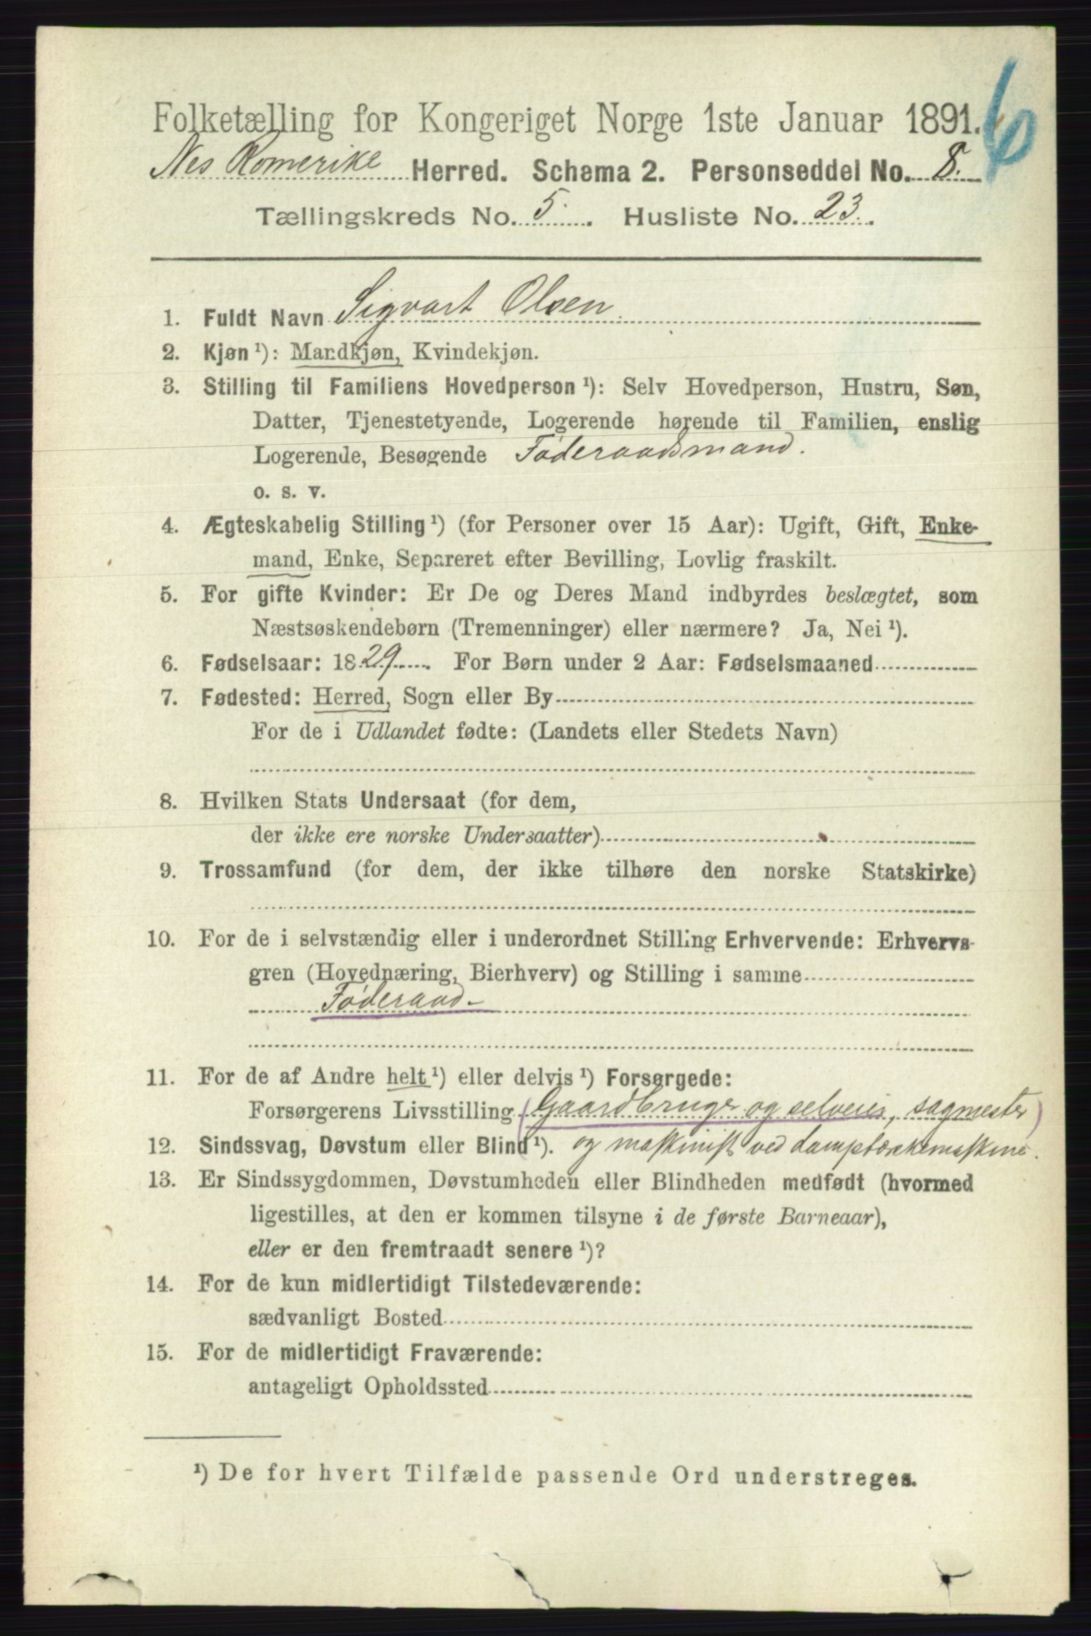 Folketælling for Kongeriget Norge 1ste Januar 1891.
6
Nes Romerike Herred. Schema 2. Personseddel No. 8.
Tællingskreds No. 5. Husliste No. 23.
1. Fuldt Navn Sigvart Olsen.
2. Kjøn ¹): Mandkjøn, Kvindekjøn.
3. Stilling til Familiens Hovedperson ¹): Selv Hovedperson, Hustru, Søn,
Datter, Tjenestetyende, Logerende hørende til Familien, enslig
Logerende, Besøgende Føderaadsmand.
o. s. v.
4. Ægteskabelig Stilling ¹) (for Personer over 15 Aar): Ugift, Gift, Enke-
mand, Enke, Separeret efter Bevilling, Lovlig fraskilt.
5. For gifte Kvinder: Er De og Deres Mand indbyrdes beslægtet, som
Næstsøskendebørn (Tremenninger) eller nærmere? Ja, Nei ¹).
6. Fødselsaar: 1829. For Børn under 2 Aar: Fødselsmaaned
7. Fødested: Herred, Sogn eller By
For de i Udlandet fødte: (Landets eller Stedets Navn)
8. Hvilken Stats Undersaat (for dem,
der ikke ere norske Undersaatter)
9. Trossamfund (for dem, der ikke tilhøre den norske Statskirke)
10. For de i selvstændig eller i underordnet Stilling Erhvervende: Erhvervs-
gren (Hovednæring, Bierhverv) og Stilling i samme
Føderaad-
11. For de af Andre helt ¹) eller delvis ¹) Forsørgede:
Forsørgerens Livsstilling (Gaardbruger og selveier, sagmester)
12. Sindssvag, Døvstum eller Blind ¹). og maskinist ved damptærskemaskine.
13. Er Sindssygdommen, Døvstumheden eller Blindheden medfødt (hvormed
ligestilles, at den er kommen tilsyne i de første Barneaar),
eller er den fremtraadt senere ¹)?
14. For de kun midlertidigt Tilstedeværende:
sædvanligt Bosted
15. For de midlertidigt Fraværende:
antageligt Opholdssted
¹) De for hvert Tilfælde passende Ord understreges.